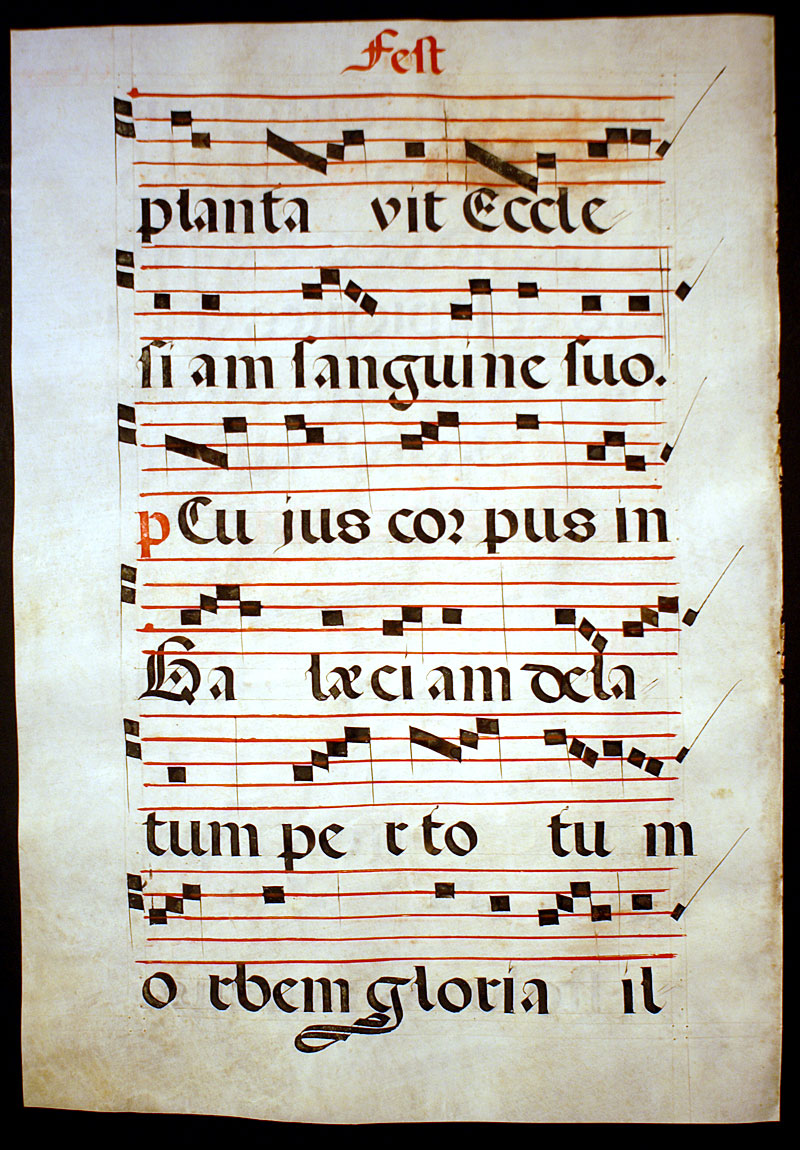 Fest
planta vit Eccle
si am sanguine suo.
p Cu jus corpus in
Ga læci am dela
tum pe r to tu m
o rbem gloria il